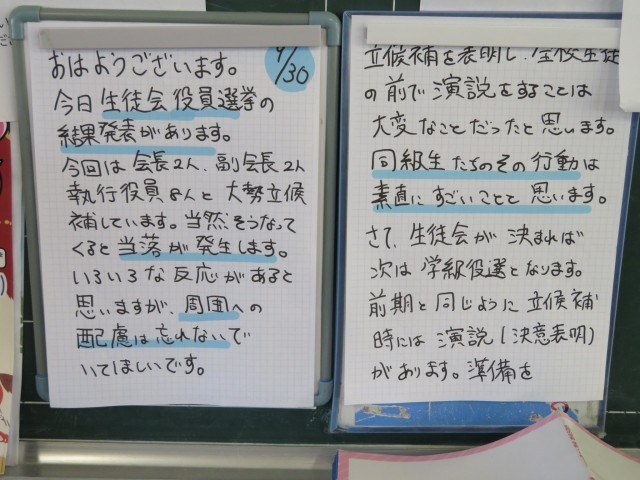 おはようございます。
9/30
今日生徒会役員選挙の
結果発表があります。
今回は会長2人、副会長2人
執行役員8人と大勢立候
補しています。当然そうなって
くると当落が発生します。
いろいろな反応があると
思いますが、周囲への
配慮は忘れないで
いてほしいです。
立候補を表明し、全校生徒
の前で演説をすることは
大変なことだったと思います。
同級生たちのその行動は
素直にすごいことと思います。
さて、生徒会が決まれば
次は学級役選となります。
前期と同じように立候補
時には演説(決意表明)
があります。準備を